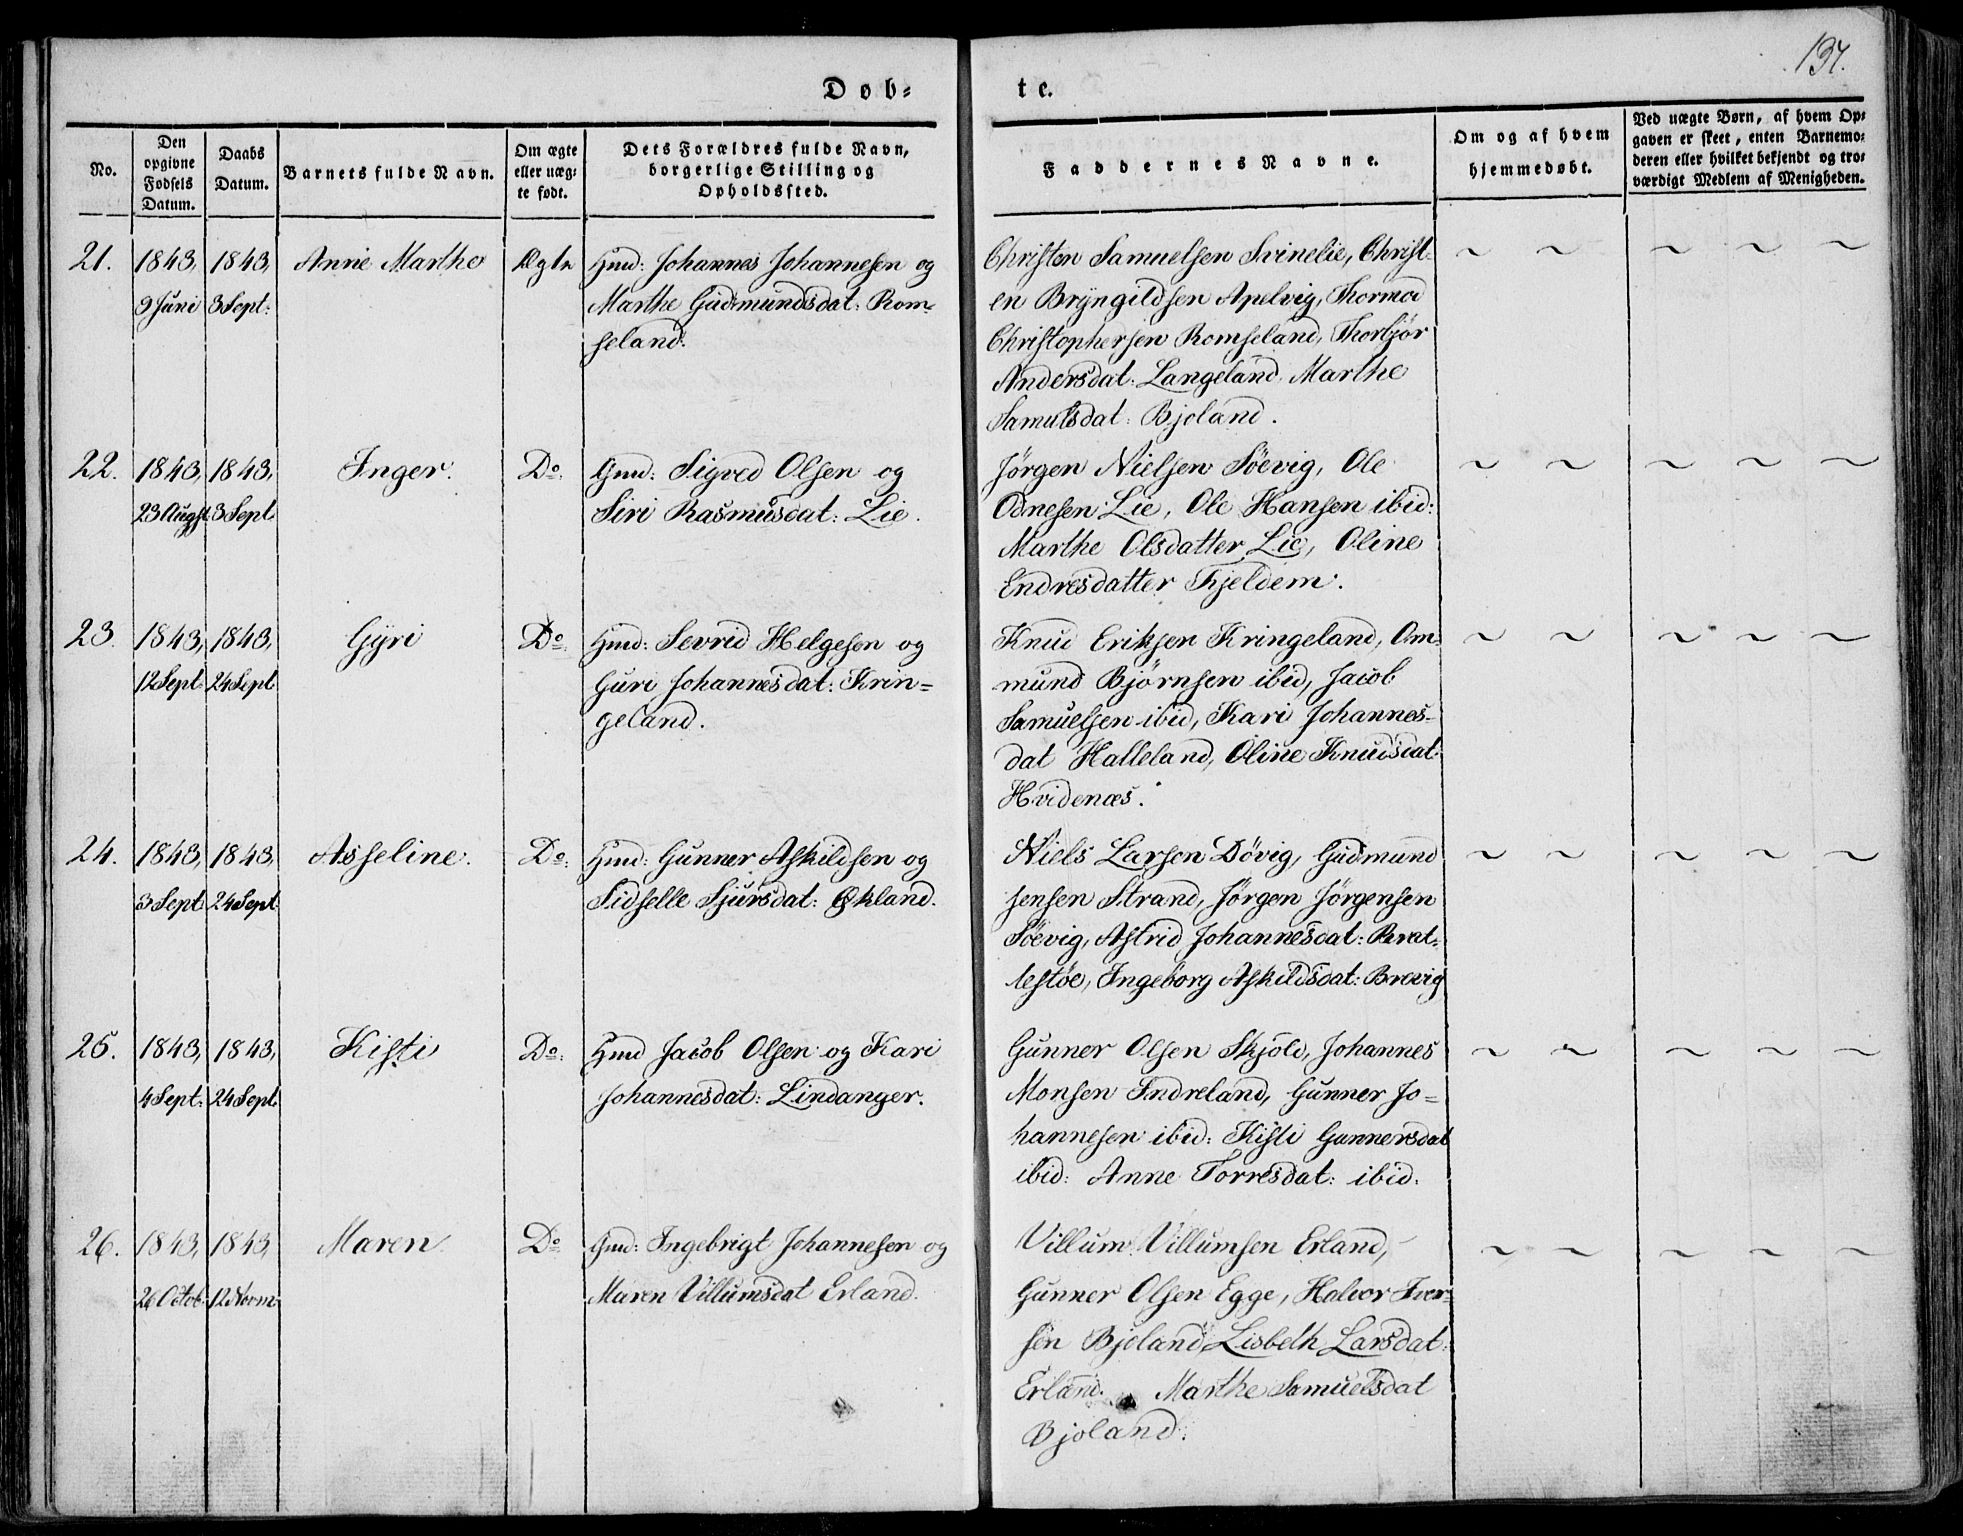 137.
Døb-
te.
No.
Den opgivne Fødsels Datum.
Daabs Datum.
Barnets fulde Navn.
Om ægte eller uæg-te født.
Dets Forældres fulde Navn, borgerlige Stilling og Opholdssted.
Faddernes Navne.
Om og af hvem hjemmedøbt.
Ved uægte Børn, af hvem Op-gaven er skeet, enten Barnemo-deren eller hvilket bekjendt og tro-værdigt Medlem af Menigheden.
21. 1843, 1843, Anne Marthe Ægte Gmd: Johannes Johannesen og
9 Juni 3 Sept: Marthe Gudmundsdat: Rom-
seland.
Christen Samuelsen Svinelie, Christ-
en Bryngildsen Apelvig, Thormod
Christophersen Romseland, Thorbjør
Andersdat: Langeland, Marthe
Samulsdat: Bjoland.
22. 1843, 1843, Inger. Do. Gmd: Sigved Olsen og
23 Augst. 3 Sept. Siri Rasmusdat: Lie.
Jørgen Nielsen Söevig, Ole
Odnesen Lie, Ole Hansen ibid:
Marthe Olsdatter Lie, Oline
Endresdatter Fjeldem.
23. 1843, 1843, Gyri Do. Gmd: Sevrid Helgesen og
12 Sept. 24 Sept Guri Johannesdat: Krin-
geland.
Knud Eriksen Kringeland, Om-
mund Bjørnsen ibid, Jacob
Samuelsen ibid, Kari Johannes-
dat Halleland, Oline Knudsdat:
Hvidenæs.
24. 1843, 1843, Asseline. Do: Gmd: Gunner Askildsen og
3 Sept. 24 Sept Sidselle Sjursdat: Økland.
Niels Larsen Dövig, Gudmund
Jensen Strand, Jørgen Jørgensen
Söevig, Astrid Johannesdat:
testöe, Ingeborg Askildsdat: Brevig
25. 1843, 1843, Kisti Do: Gmd Jacob Olsen og Kari
4 Sept: 24 Sept. Johannesdat: Lindanger.
Gunner Olsen Skjold, Johannes
Monsen Indreland, Gunner Jo-
hannesen ibid: Kisti Gunnersdat
ibid: Anne Torresdat: ibid.
26. 1843, 1843, Maren Do Gmd: Ingebrigt Johannesen og
26 Octob. 12 Novm: Maren Villumsdat Erland.
Villum Villumsen Erland,
Gunner Olsen Egge, Halvor Iver-
sen Bjoland, Lisbeth Larsdat:
Erland. Marthe Samuelsdat
Bjoland.